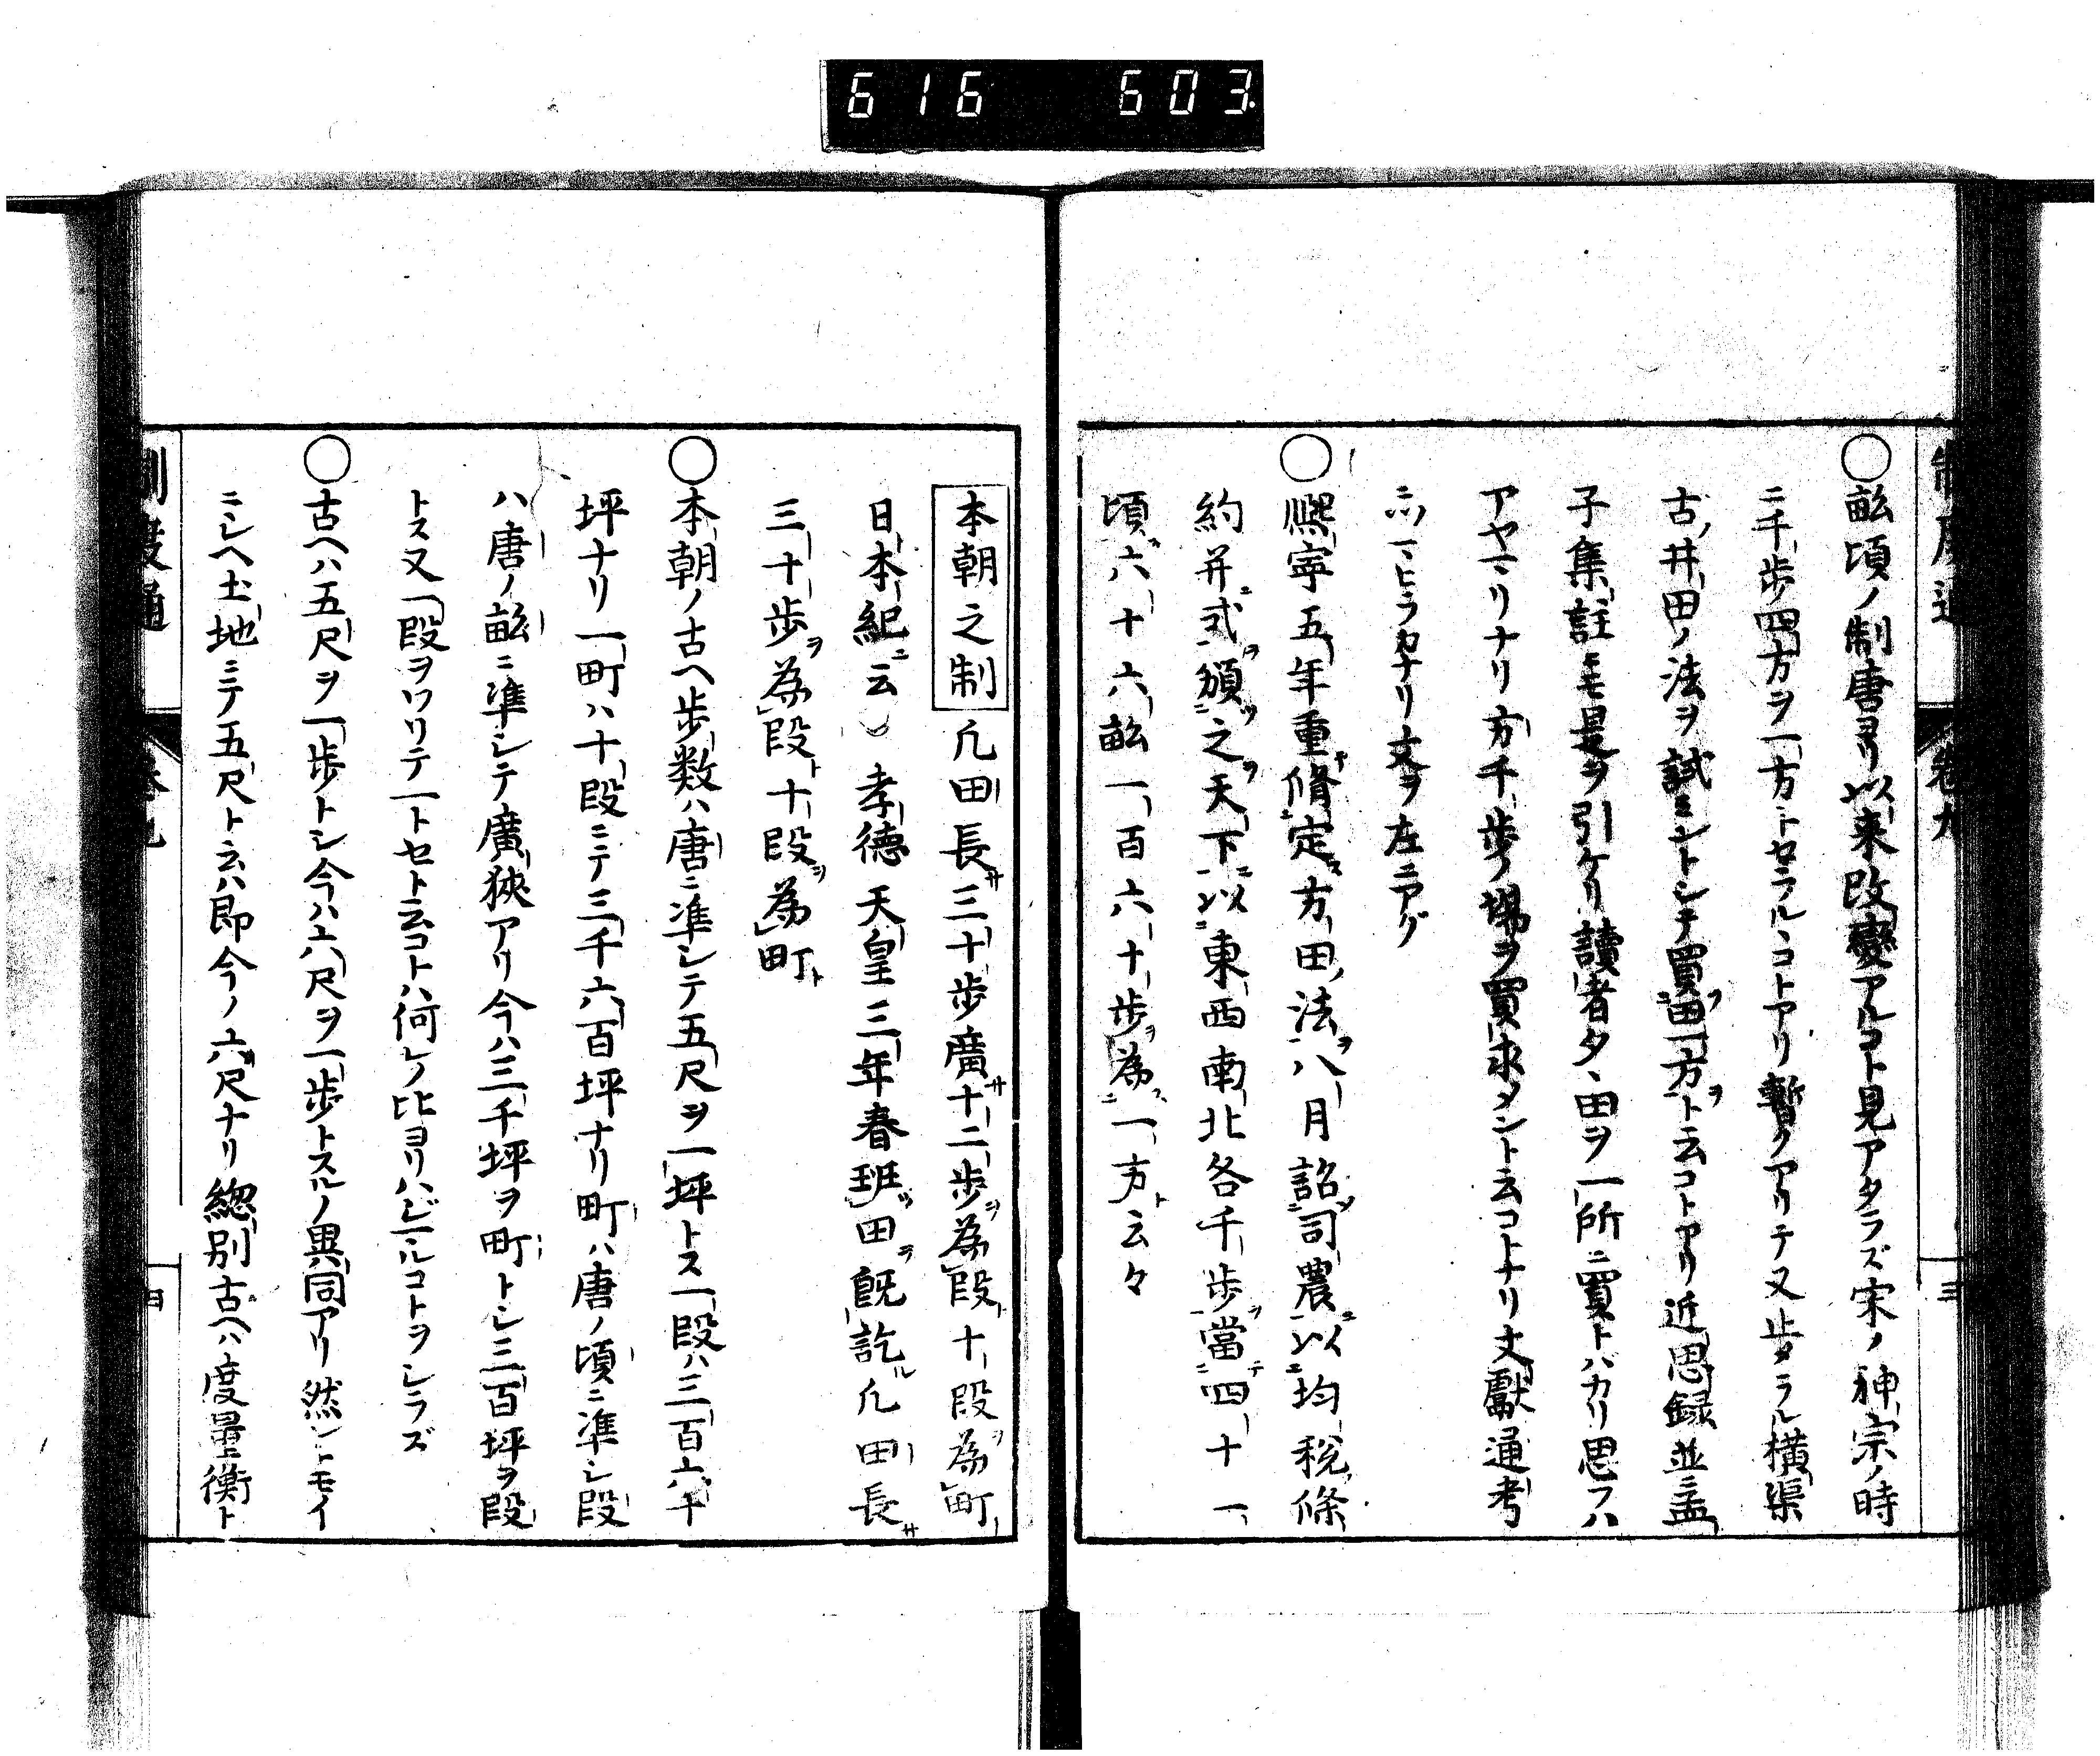 616 603
○畝頃ノ制唐ヨリ以来改變アルコト見アタラズ宋ノ神宗ノ時
ニ千歩四方ヲ一方トセラルヽコトアリ暫クアリテ又止タラル横渠
古ノ井田ノ法ヲ試ミントシテ買田一方ト云コトアリ近思録並孟
子集註ニモ是ヲ引ケリ讀者タヽ田ヲ一所ニ買トハカリ思フハ
アヤマリナリ方千歩ノ場ヲ買求メント云コトナリ文獻通考
ニハツマヒラカナリ文ヲ左ニアグ
○熈寧五年重脩定方田法八月詔司農以均税條
約并式頒之天下以東西南北各千歩當四十一
頃六十六畝一百六十歩為一方云々
本朝之制 凡田長三十歩廣十二歩為段十段為町
日本紀云孝徳天皇三年春班田既訖凡田長
三十歩為段十段為町
○本朝ノ古ヘ歩数ハ唐ニ準シテ五尺ヲ一坪トス一段ハ三百六十
坪ナリ一町ハ十段ニテ三千六百坪ナリ町ハ唐ノ頃ニ準シ段
ハ唐ノ畝ニ準シテ廣狹アリ今ハ三千坪ヲ町トシ三百坪ヲ段
トス又一段ヲワリテ一トセト云コトハ何レノ比ヨリハジマルコトヲシラズ
○古ヘハ五尺ヲ一歩トシ今ハ六尺ヲ一歩トスルノ異同アリ然レトモイ
ニシヘ土地ニテ五尺ト云ハ即今ノ六尺ナリ總別古ヘハ度量衡ト